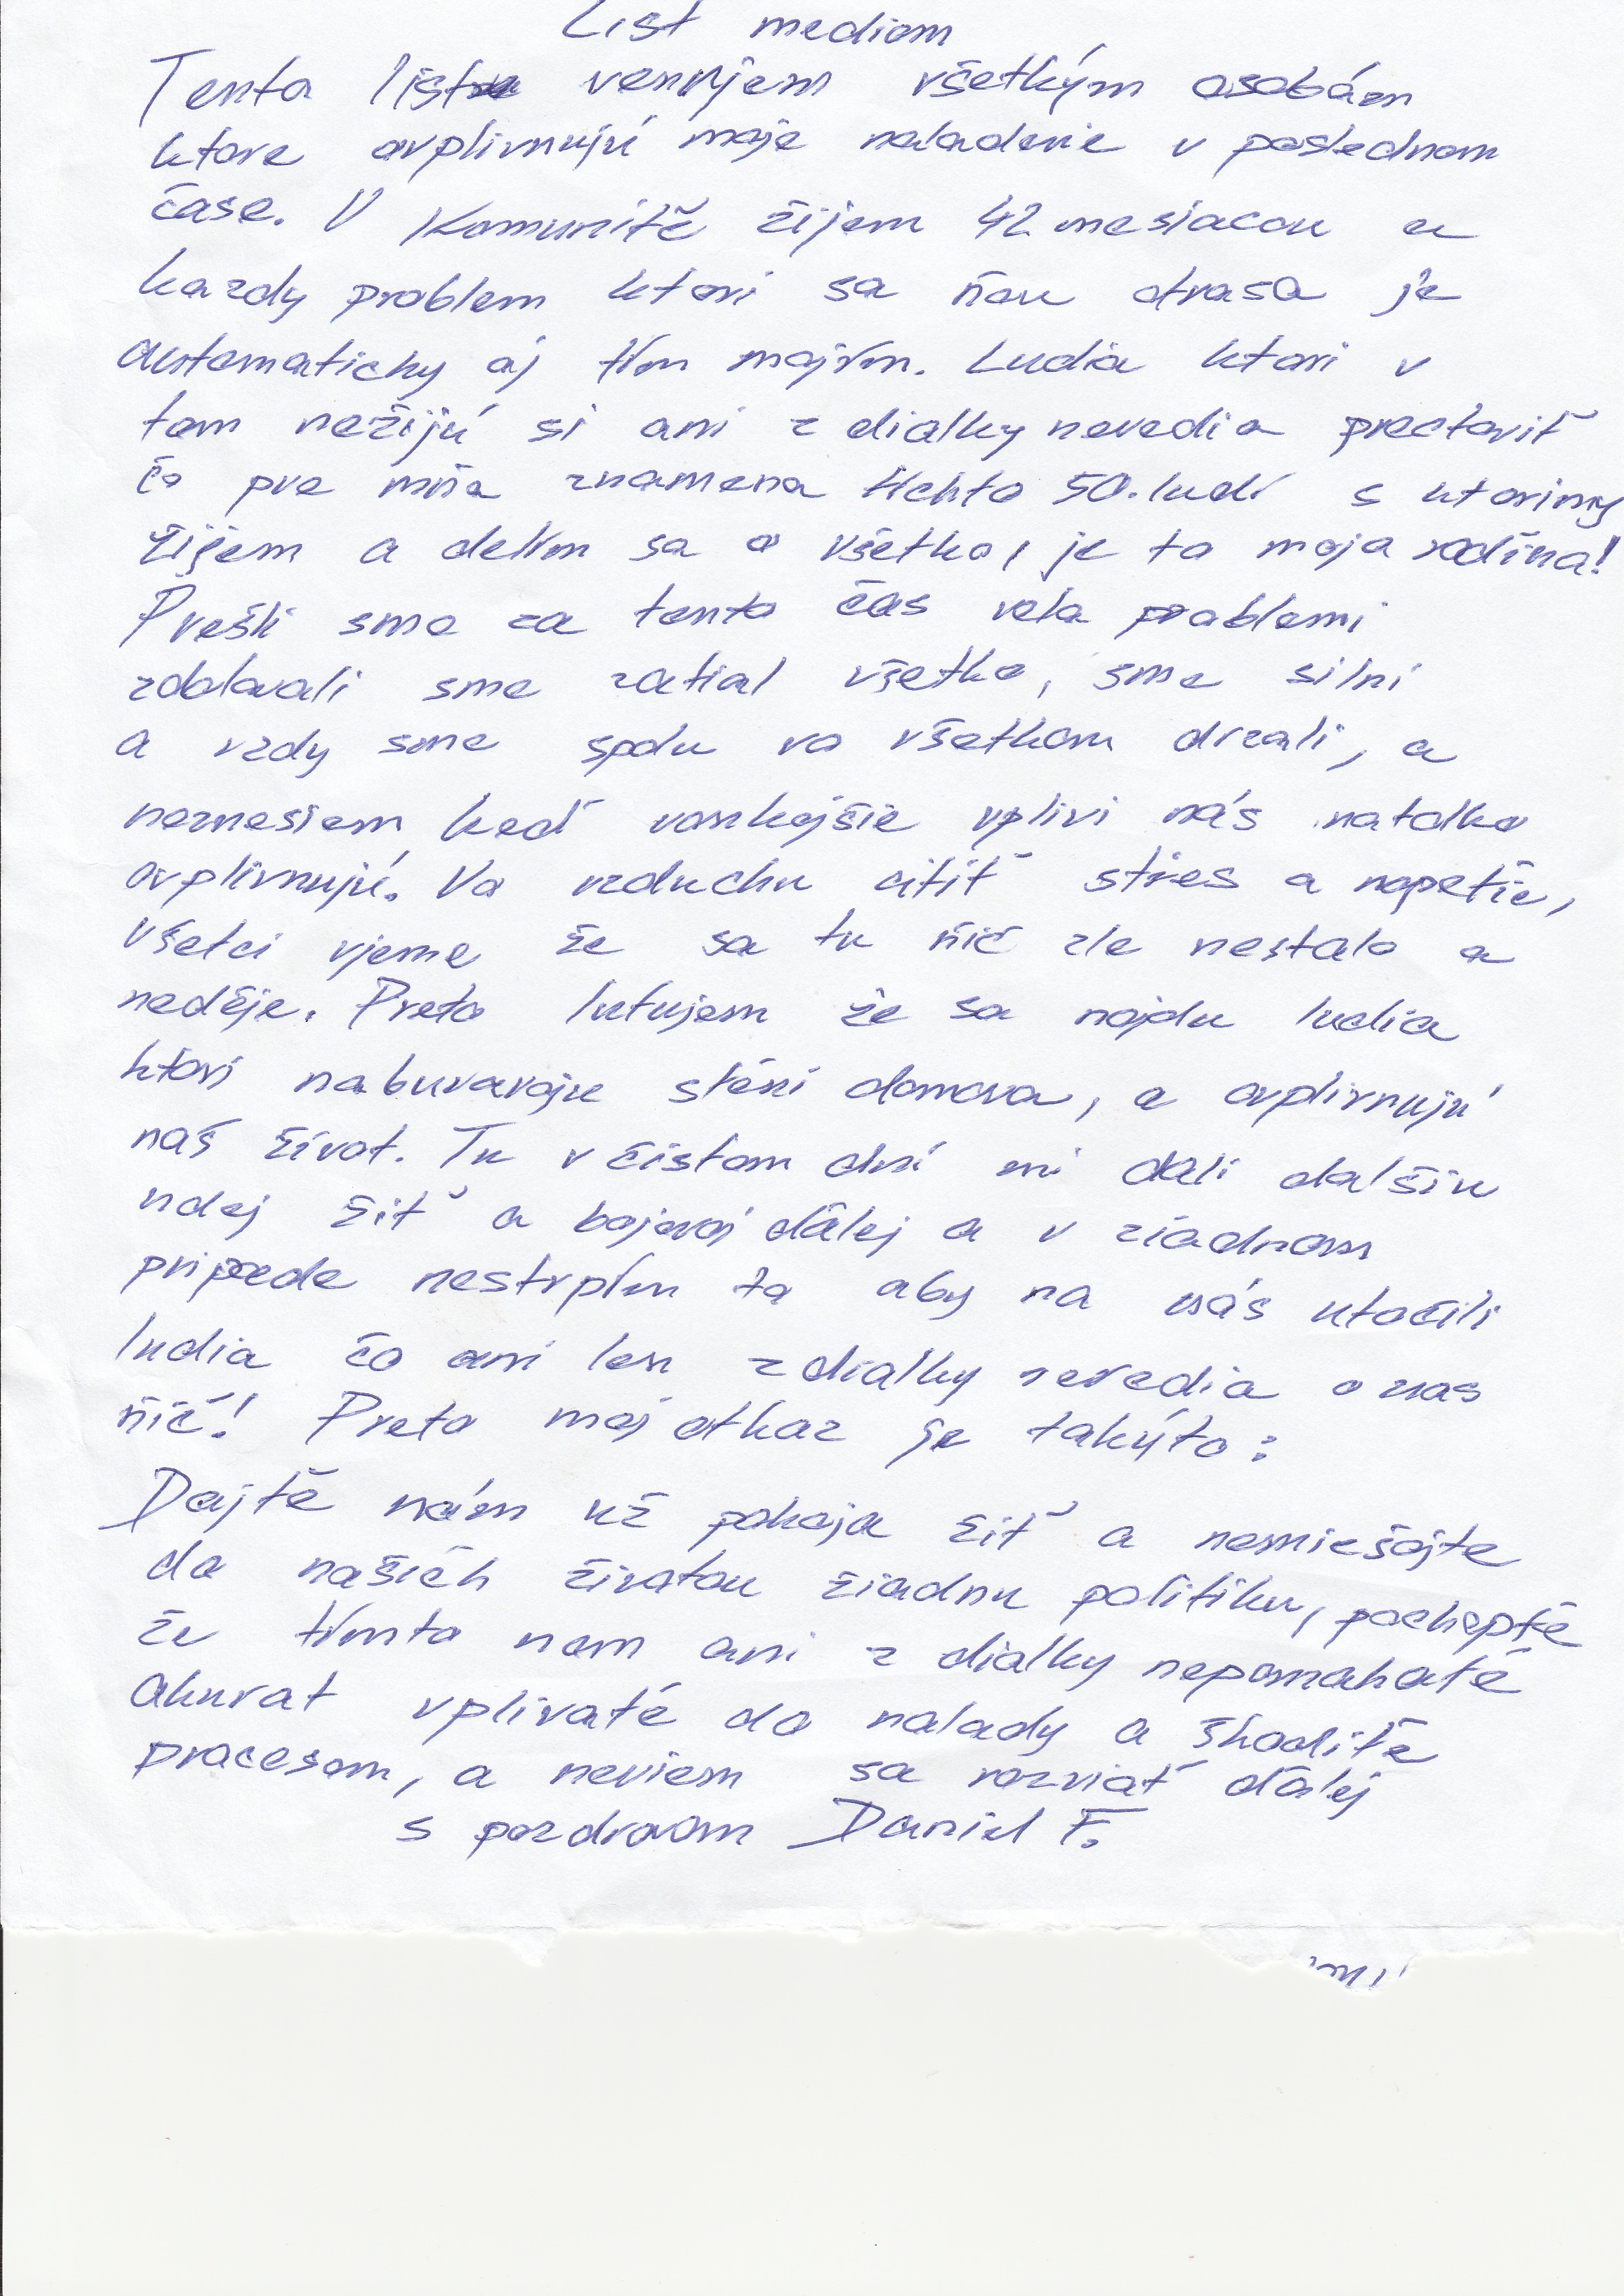 List mediom
Tento list venujem všetkým osobám
ktore ovplivnujú moje naladenie v poslednom
čase. V Komunitě žijem 42 mesiacou a
kazdy problem ktori sa ňou otrasa je
automaticky aj tím mojím. Ludia ktori v
tom nežijú si ani z dialky nevedia prectaviť
čo pre mňa znamena tichto 50. ludí s ktorimy
žijem a delím sa o všetko, je to moja rodina!
Prešli sme za tento čas vela problemi
zdolavali sme zatial všetko, sme silní
a vzdy sme spolu vo všetkom drzali, a
neznesiem keď vonkajšie vplivi nás natolko
ovplivnujú. Vo vzduchu citiť stres a napetie,
všetci vjeme že sa tu nič zle nestalo a
neděje. Preto lutujem že sa najdu ludia
ktorí naburavaju stení domova, a ovplivnujú
náš život. Tu v čistom dní mi dali dalšiu
ndej žiť a bojovaj ďálej a v ziadnom
pripade nestrpím to aby na nás utočili
ludia čo ani len z dialky nevedia o nas
nič! Preto moj otkaz je takýto:
Dajtě nám už pokoja žiť a nemiešajte
do našich životou žiadnu politiku, pochoptě
že tímto nam ani z dialky nepomahatě
akurat vplivatě do nalady a škoditě
procesom, a neviem sa rozviať ďálej
s pozdravom Daniel F.